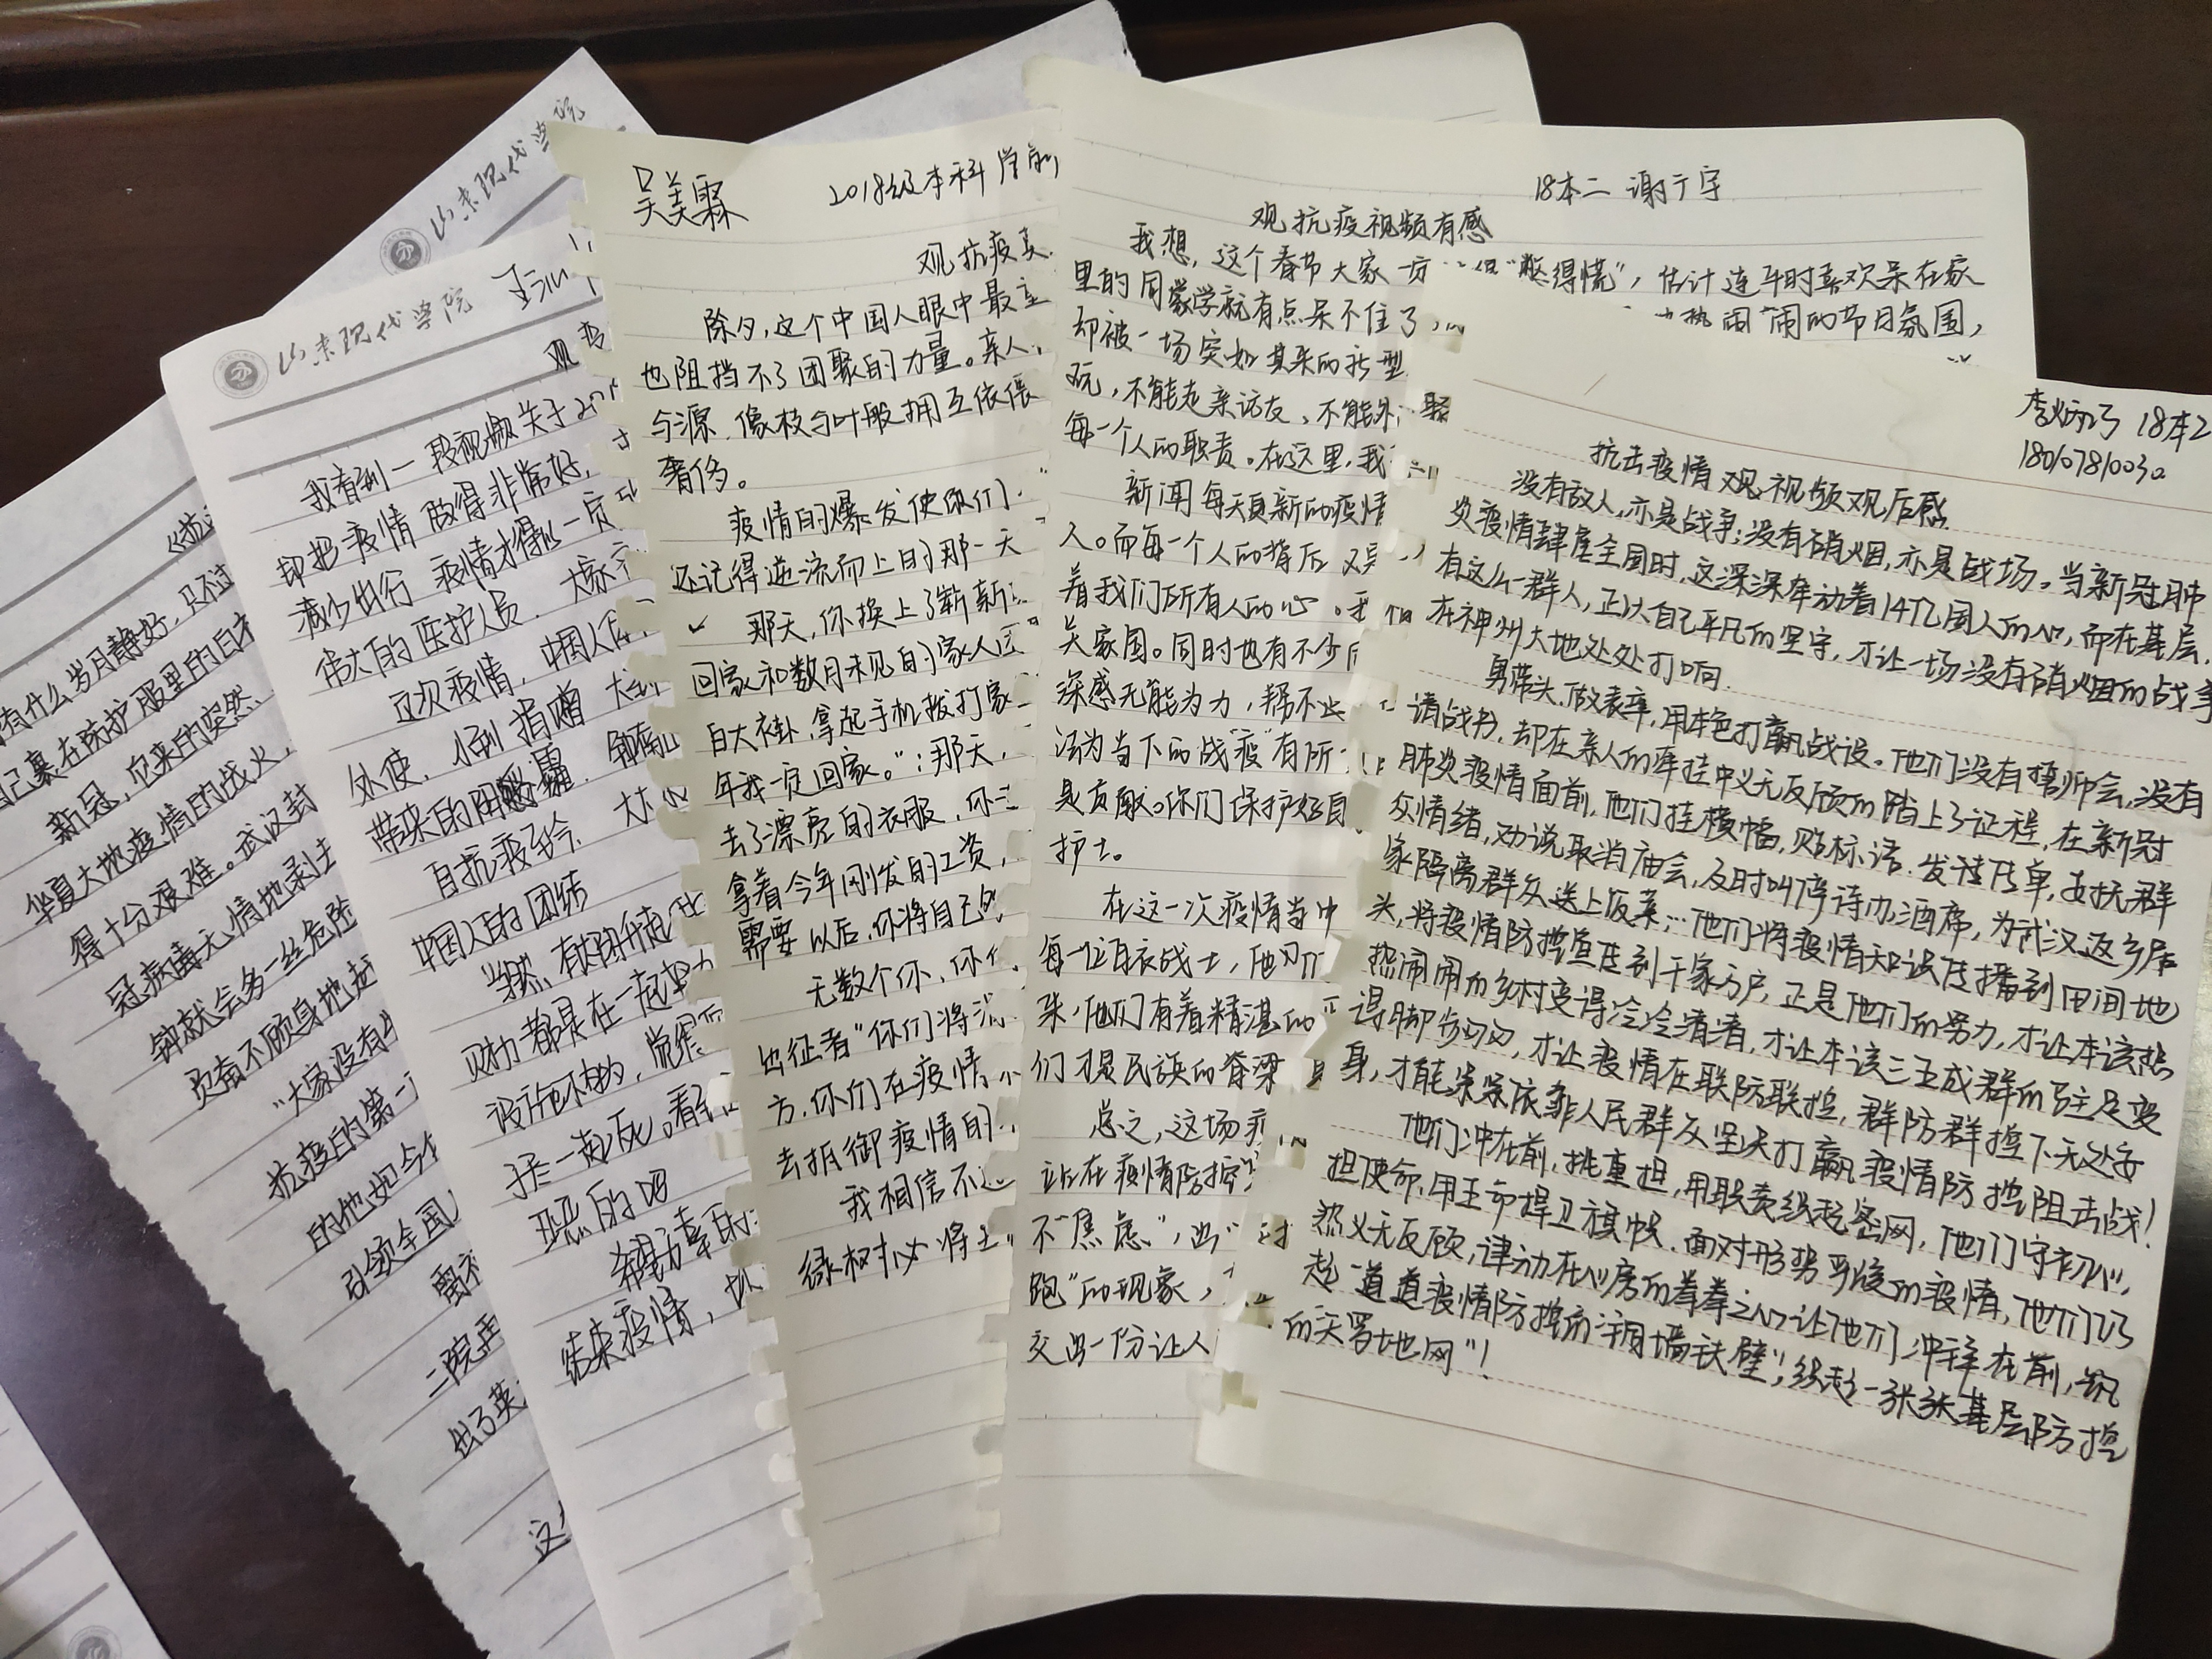 山东现代学院
山东现代学院
有什么岁月静好,只不过
自己裹在防护服里的白衣
新冠,它来的突然
华夏大地疫情的战火,
得十分艰难。武汉封
冠病毒无情地录
钟就会多一丝危险
员奋不顾身地赴
"大家没有
抗疫的第一
的他如今
引领全国
离
二院
出了英
这
观
我看到一段视频关于20
却把疫情做得非常好,
减少出行 疫情才得以一
伟大的医护人员.大家
这次疫情,中国人
处使,小到捐赠 大到
带来的阴霾.
自抗疫至今.
中国人的团结
当然,有
财力都是在一起
没说怀的,觉得
于一起死。看到
恶的吧
希望
结束疫情,
吴美霖 2018级本科学前
观抗疫
除夕,这个中国人眼中最
也阻挡不了团聚的力量。亲人,
与源.像枝与叶般拥互依偎
奢侈。
疫情的爆发使你们
还记得逆流而上的那一天
那天,你换上了崭新
回家和数月未见的家人
白大褂,拿起手机拨打家
年我一定回家。";那天,
去了漂亮的衣服,你
拿着今年刚发的工资,
需要以后,你将自己
无数个你,你
出征者"你们将
方.你们在疫情
去抵御疫情的
我相信不
绿树必将
18本二 谢于宇
观抗疫视频有感
我想,这个春节大家一 "憋得慌",估计连平时喜欢呆在家
里的同学就有点呆不住了, 热闹闹的节日氛围,
却被一场突如其来的新型
玩,不能走亲访友、不能外
每一个人的职责。在这里,我
新闻每天更新的疫情
人。而每一个人的背后又
着我们所有人的心。
关家国。同时也有不少
深感无能为力,帮不
法为当下的战"疫"有所
是贡献。你们保护好自
护士。
在这一次疫情当中
每一位白衣战士,他们
来,他们有着精湛的
们才是民族的脊梁
总之,这场
站在疫情防控
不"焦虑",出"
跑"的现象,
交出一份让人
18本2
18010781003
抗击疫情观视频观后感
没有敌人,亦是战争;没有硝烟,亦是战场。当新冠肺
炎疫情肆虐全国时,这深深牵动着14亿国人的心,而在基层,
有这么一群人,正以自己平凡的坚守,才让一场没有硝烟的战争
在神州大地处处打响.
勇带头.做表率,用本色打赢战役。他们没有誓师会,没有
请战书,却在亲人的牵挂中义无反顾的踏上了征程,在新冠
肺炎疫情面前,他们挂横幅,贴标语.发宣传单,安抚群
众情绪,劝说取消庙会,及时叫停请办酒席,为武汉返乡居
家隔离群众送上饭菜…他们将疫情知识传播到田间地
头,将疫情防控宣传到千家万户,正是他们的努力,才让本该热
热闹闹的乡村变得冷冷清清,才让本该三五成群的驻足变
得脚步匆匆,才让疫情在联防联控,群防群控下无处安
身,才能紧紧依靠人民群众坚决打赢疫情防控阻击战!
他们冲在前,挑重担,用职责织起密网,他们守初心,
担使命,用生命捍卫旗帜.面对形势严峻的疫情,他们仍
然义无反顾,律动在心房的拳拳之心让他们冲锋在前,筑
起一道道疫情防控的"铜墙铁壁",织起一张张基层防控
的天罗地网"!